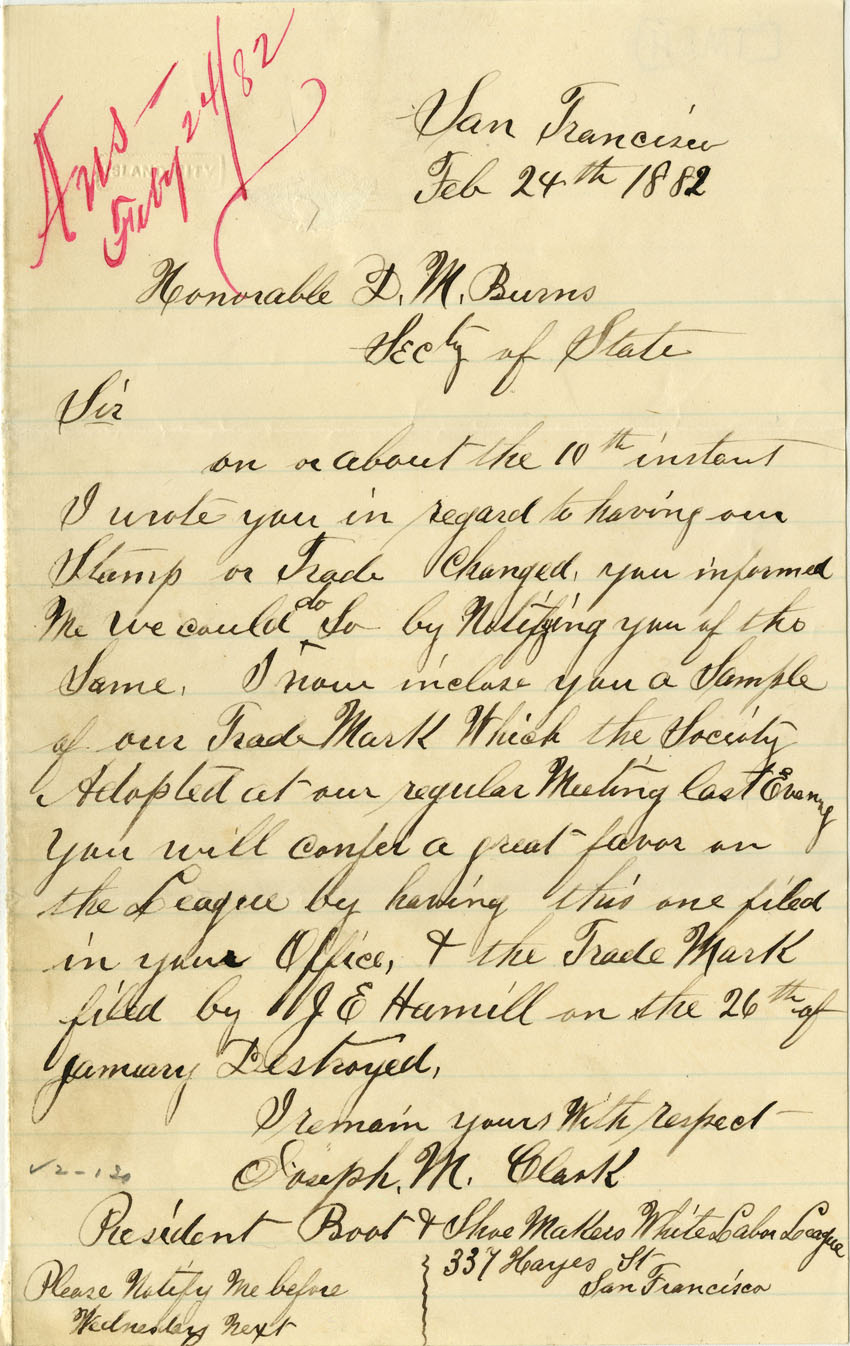 Ans-
Feby 24/82
San Francisco
Feb 24th 1882
Honorable D. M. Burns
Secty of State
Sir
on or about the 10th instant
I wrote you in regard to having our
Stamp or Trade Changed, you informed
Me we could do So by Notifying you of the
Same. I now inclose you a Sample
of our Trade Mark Which the Society
Adopted at our regular Meeting last Evening
You will confer a great favor on
the League by having this one filed
in your Office, & the Trade Mark
filed by J E Hamill on the 26th of
January Destroyed,
I remain yours With respect
Joseph. M. Clark
President Boot & Shoe Makers White Labor League
337 Hayes St
San Francisco
Please Notify Me before
Wednesday Next